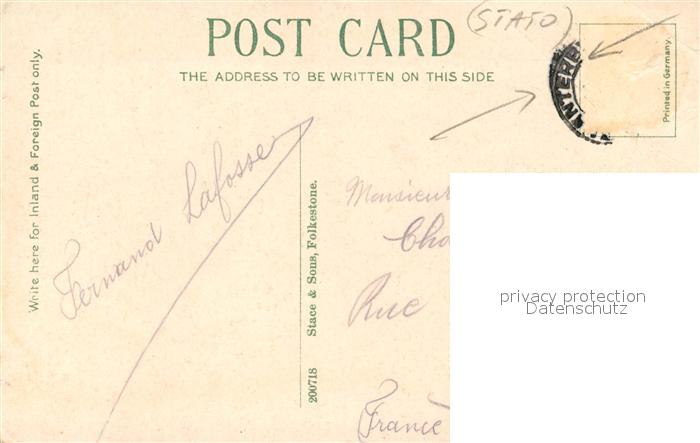 (STATO)
POST CARD
THE ADDRESS TO BE WRITTEN ON THIS SIDE
Write here for Inland & Foreign Post only.
Fernand Lafosse
Stace & Sons, Folkestone.
200718
Printed in Germany.
Monsieur
Rue
France
privacy protection
Datenschutz